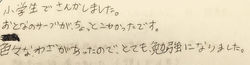 小学生でさんかしました。
おとなのサーブが、ちょっとこわかったです。
色々なわざがあったので、とても勉強になりました。